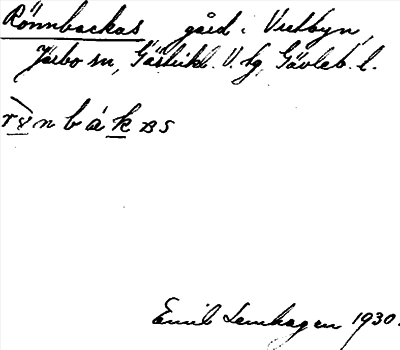 Rönnbackas gård i Vretbyn,
Järbo sn, Gästrikl. V. tg, Gävleb. l.
Emil Lemhagen 1930.